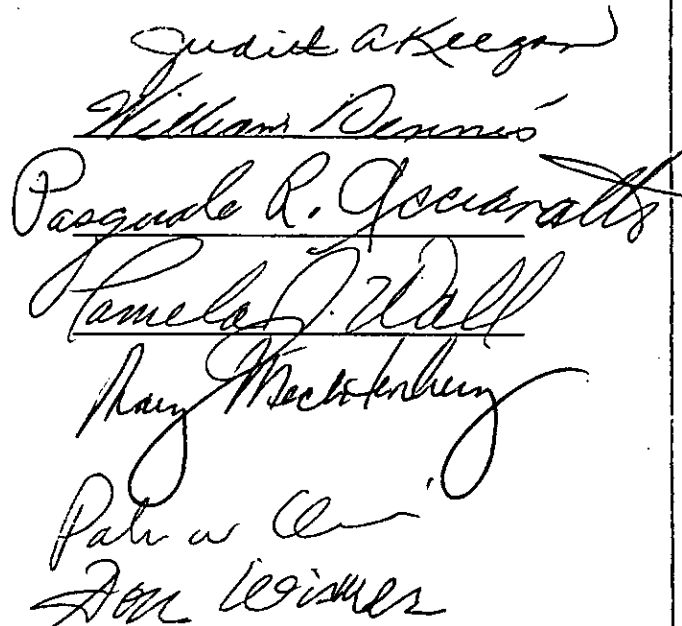 Judith A Keegan
William Dennis
Pasquale R. 
Pamela J. Wall
Mary Mecklenburg
Don Wismer